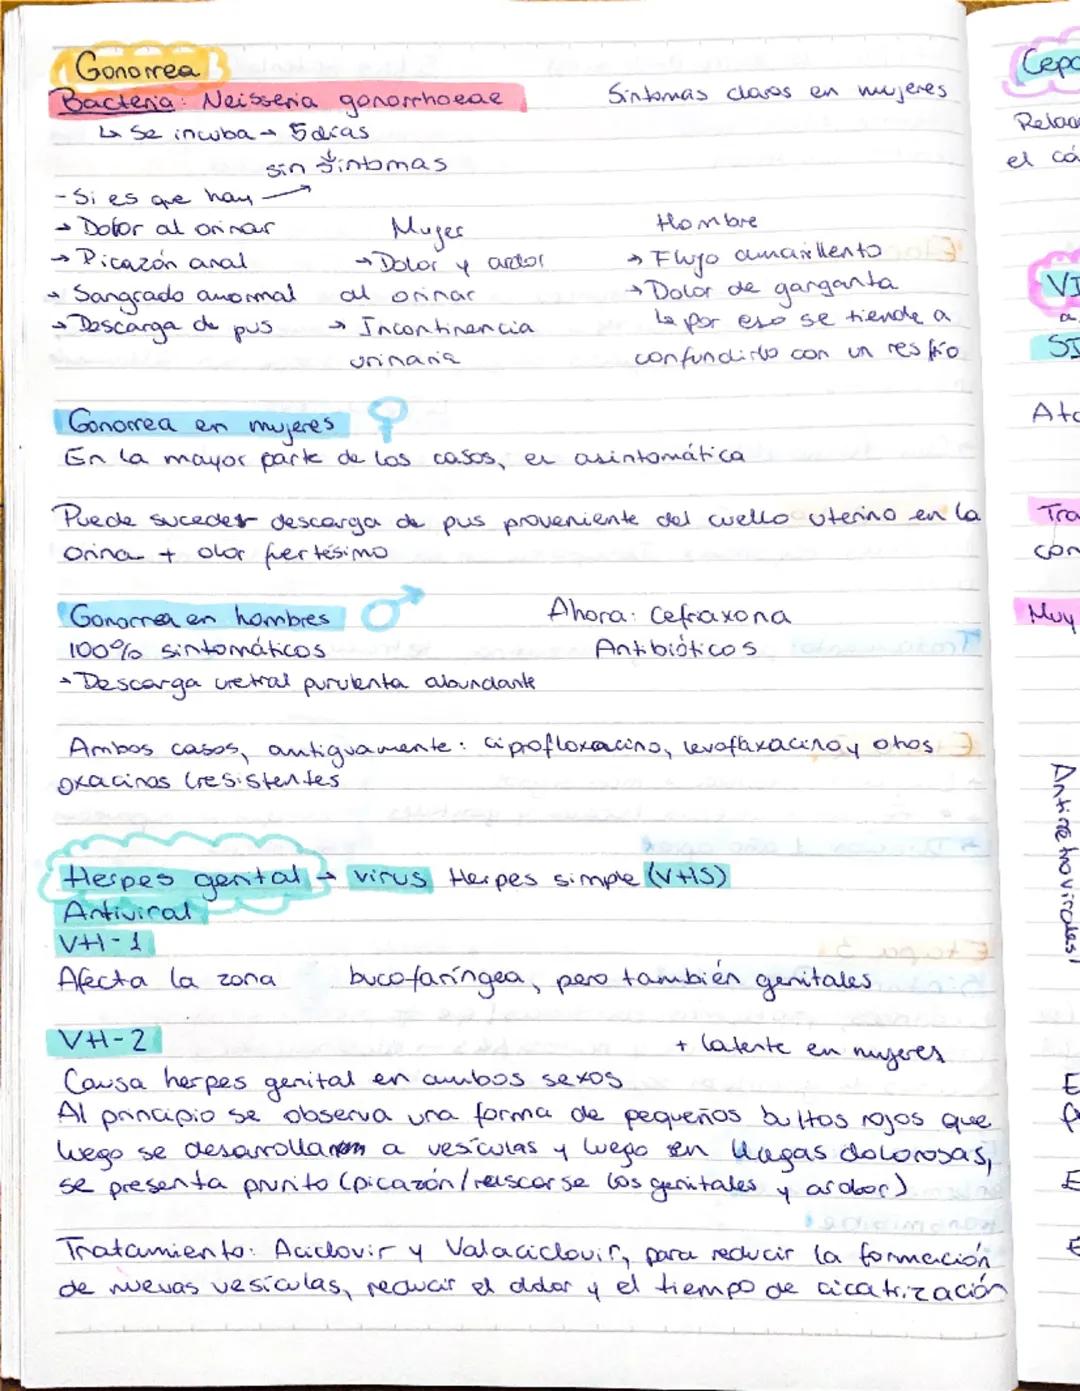 Gonorrea
Bacteria: Neisseria gonorrhoeae
Sintomas claros en mujeres
↳ Se incuba → 5 días
sin síntomas
- Si es que hay →
→ Dolor al orinar
→ Picazón anal
→ Sangrado anormal
→ Descarga de pus
Mujer
→ Dolor y ardor
al orinar
→ Incontinencia
urinaria
Hombre
→ Flujo amarillento
→ Dolor de garganta
↳ por eso se tiende a
confundirlo con un resfrío
Gonorrea en mujeres ♀
En la mayor parte de los casos, es asintomática
Puede suceder descarga de pus proveniente del cuello uterino en la
orina + olor fuertésimo
Gonorrea en hombres ♂
100% sintomáticos
→ Descarga uretral purulenta abundante
Ahora: Cefraxona
Antibióticos
Ambos casos, antiguamente: ciprofloxacino, levofloxacino y otros
oxacinos (resistentes
Herpes genital → virus Herpes simple (VHS)
Antiviral
VH-1
Afecta la zona bucofaríngea, pero también genitales
VH-2
+ latente en mujeres
Causa herpes genital en ambos sexos
Al principio se observa una forma de pequeños bultos rojos que
luego se desarrollan a vesículas y luego en llagas dolorosas,
se presenta prurito (picazón/rascarse los genitales y ardor)
Tratamiento: Aciclovir y Valaciclovir, para reducir la formación
de nuevas vesículas, reducir el dolor y el tiempo de cicatrización
Cepa
el
VI
SI
Tra
con
Muy
Antiretrovirales